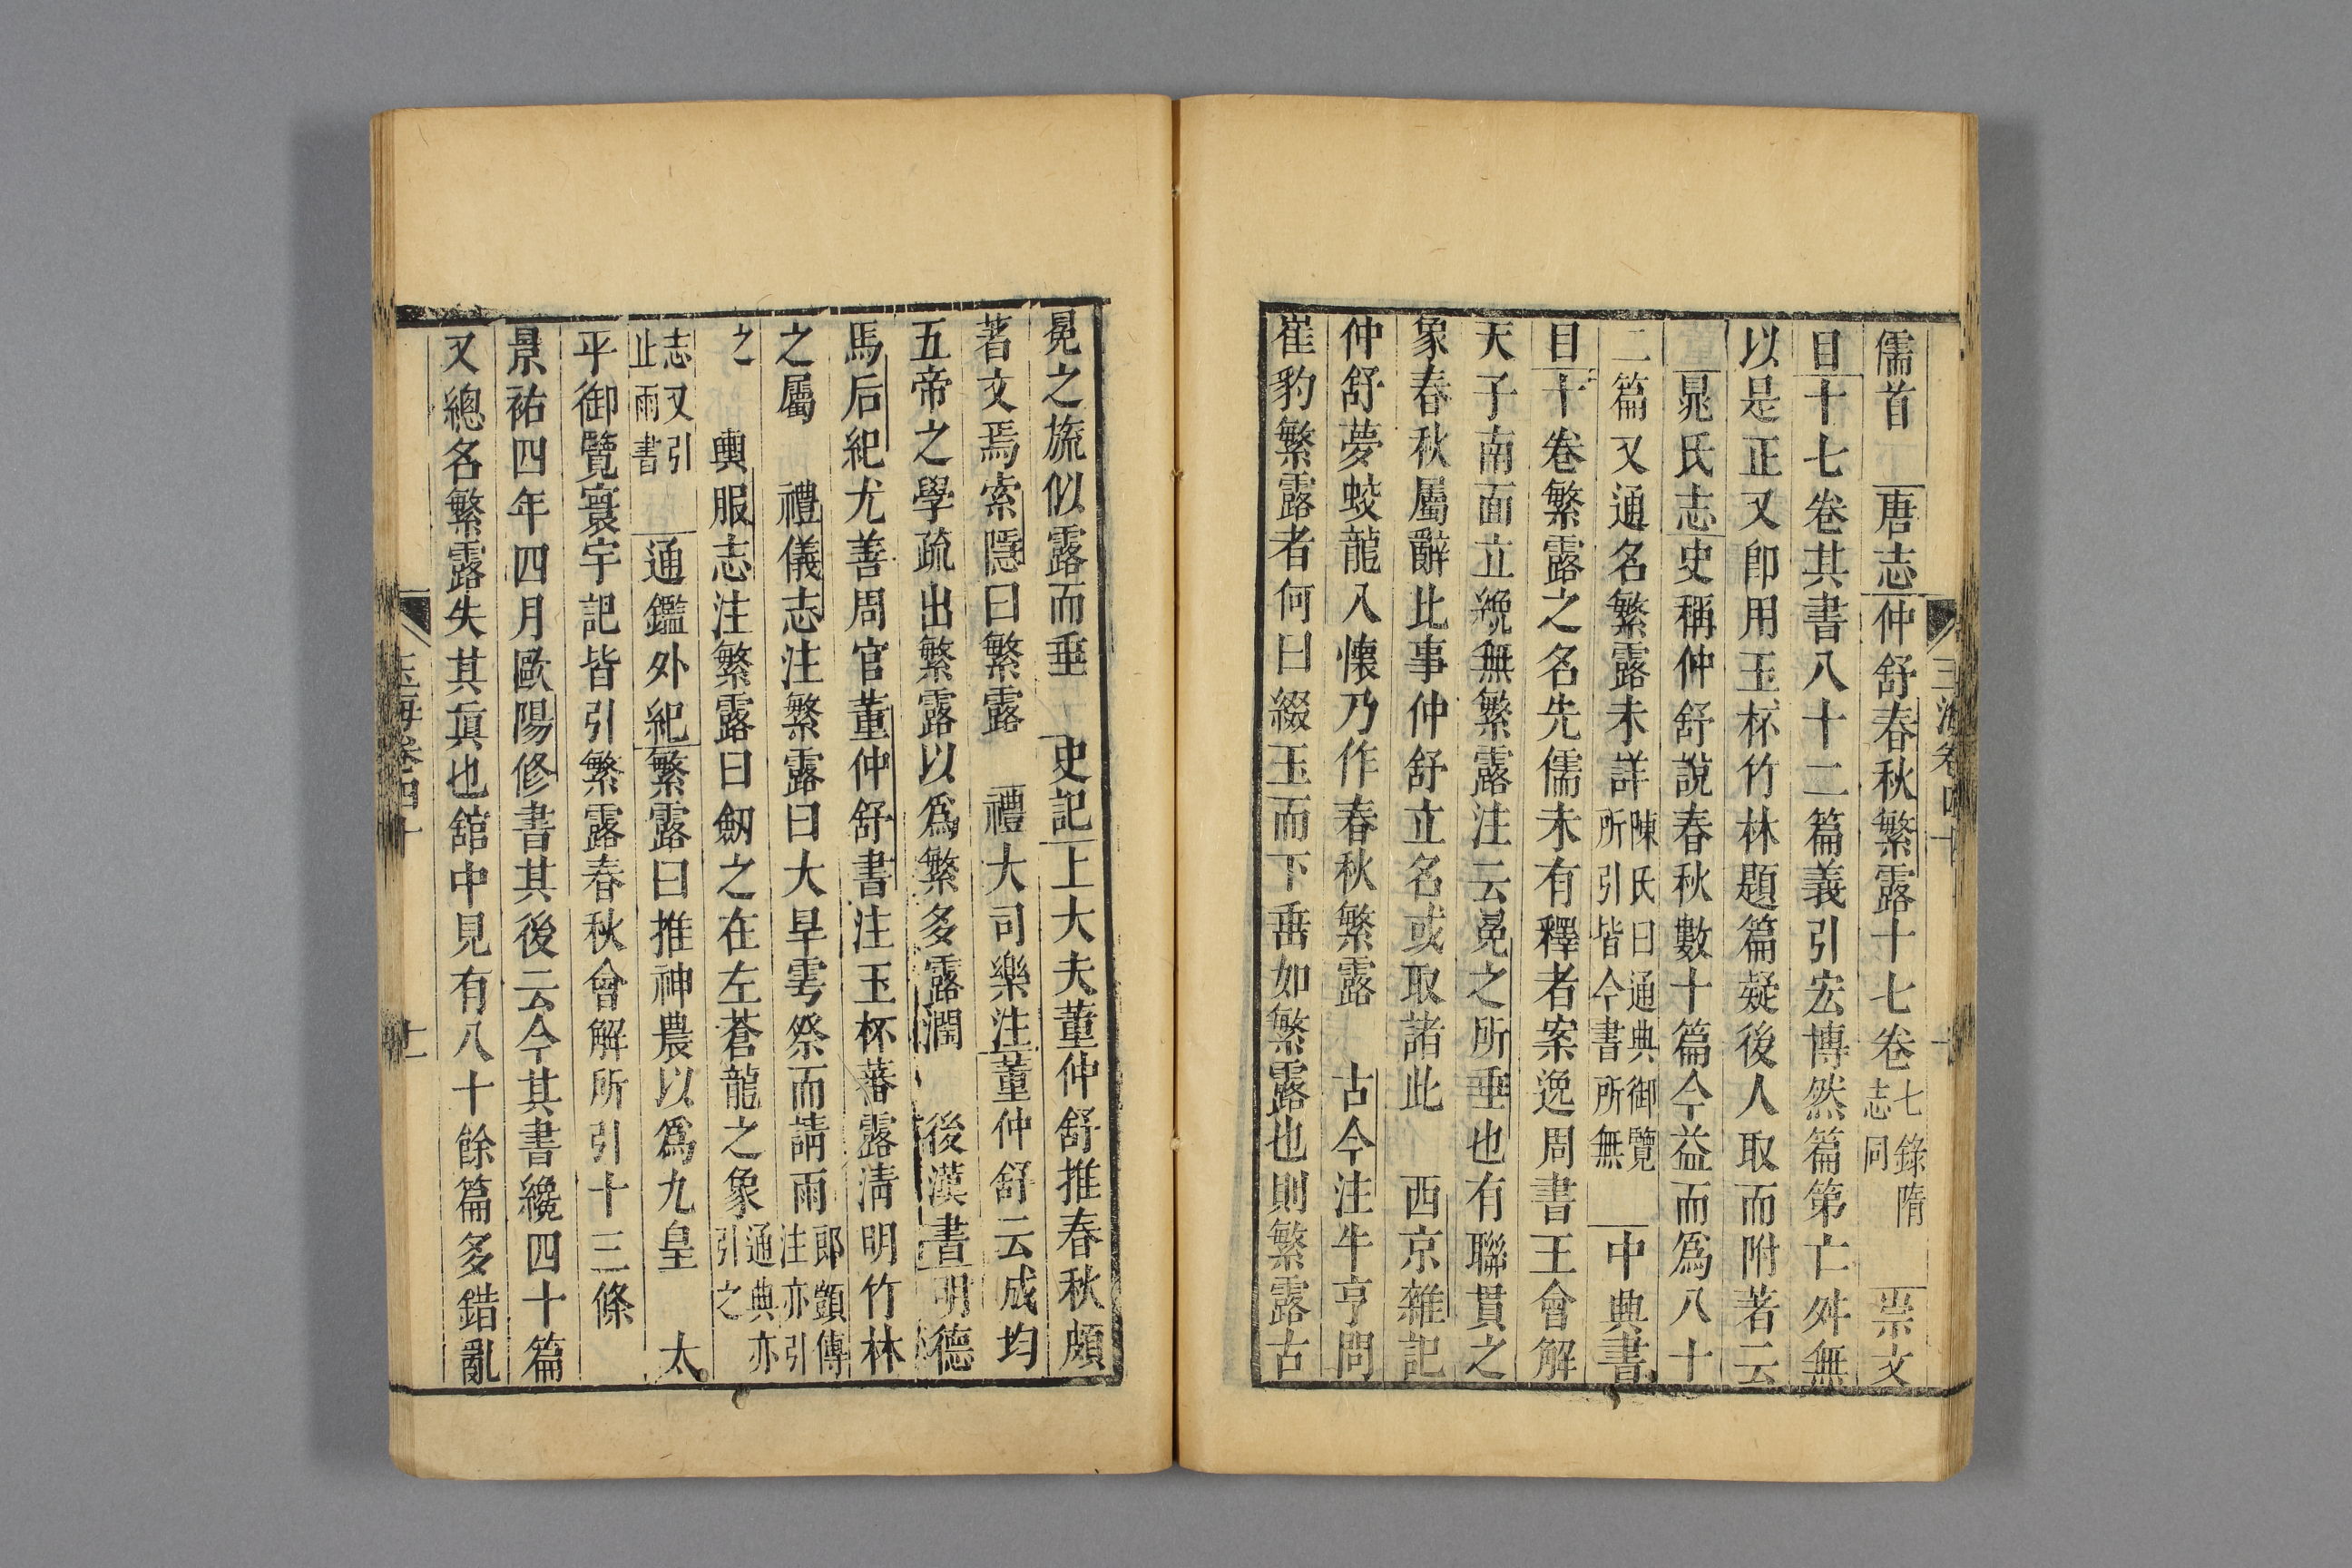 儒首　唐志仲舒春秋繁露十七卷七錄隋志同　崇文
目十七卷其書八十二篇義引宏博然篇第亡舛無
以是正又卽用玉杯竹林題篇疑後人取而附著云
晁氏志史稱仲舒說春秋數十篇今益而爲八十
二篇又通名繁露未詳陳氏曰通典御覽所引皆今書所無　中典書
目十卷繁露之名先儒未有釋者案逸周書王會解
天子南面立絻無繁露注云冕之所垂也有聯貫之
象春秋屬辭比事仲舒立名或取諸此　西京雜記
仲舒夢蛟龍入懷乃作春秋繁露　古今注牛亨問
崔豹繁露者何曰綴玉而下垂如繁露也則繁露古
冕之旒似露而垂　史記上大夫董仲舒推春秋頗
著文焉索隱曰繁露　禮大司樂注董仲舒云成均
五帝之學疏出繁露以爲繁多露潤　後漢書明德
馬后紀尤善周官董仲舒書注玉杯蕃露淸明竹林
之屬　禮儀志注繁露曰大旱雩祭而請雨郎顗傳注亦引
之　輿服志注繁露曰劒之在左蒼龍之象通典亦引之
志又引止雨書　通鑑外紀繁露曰推神農以爲九皇　太
平御覽寰宇記皆引繁露春秋會解所引十三條
景祐四年四月歐陽修書其後云今其書纔四十篇
又總名繁露失其眞也舘中見有八十餘篇多錯亂
玉海卷四十
十一